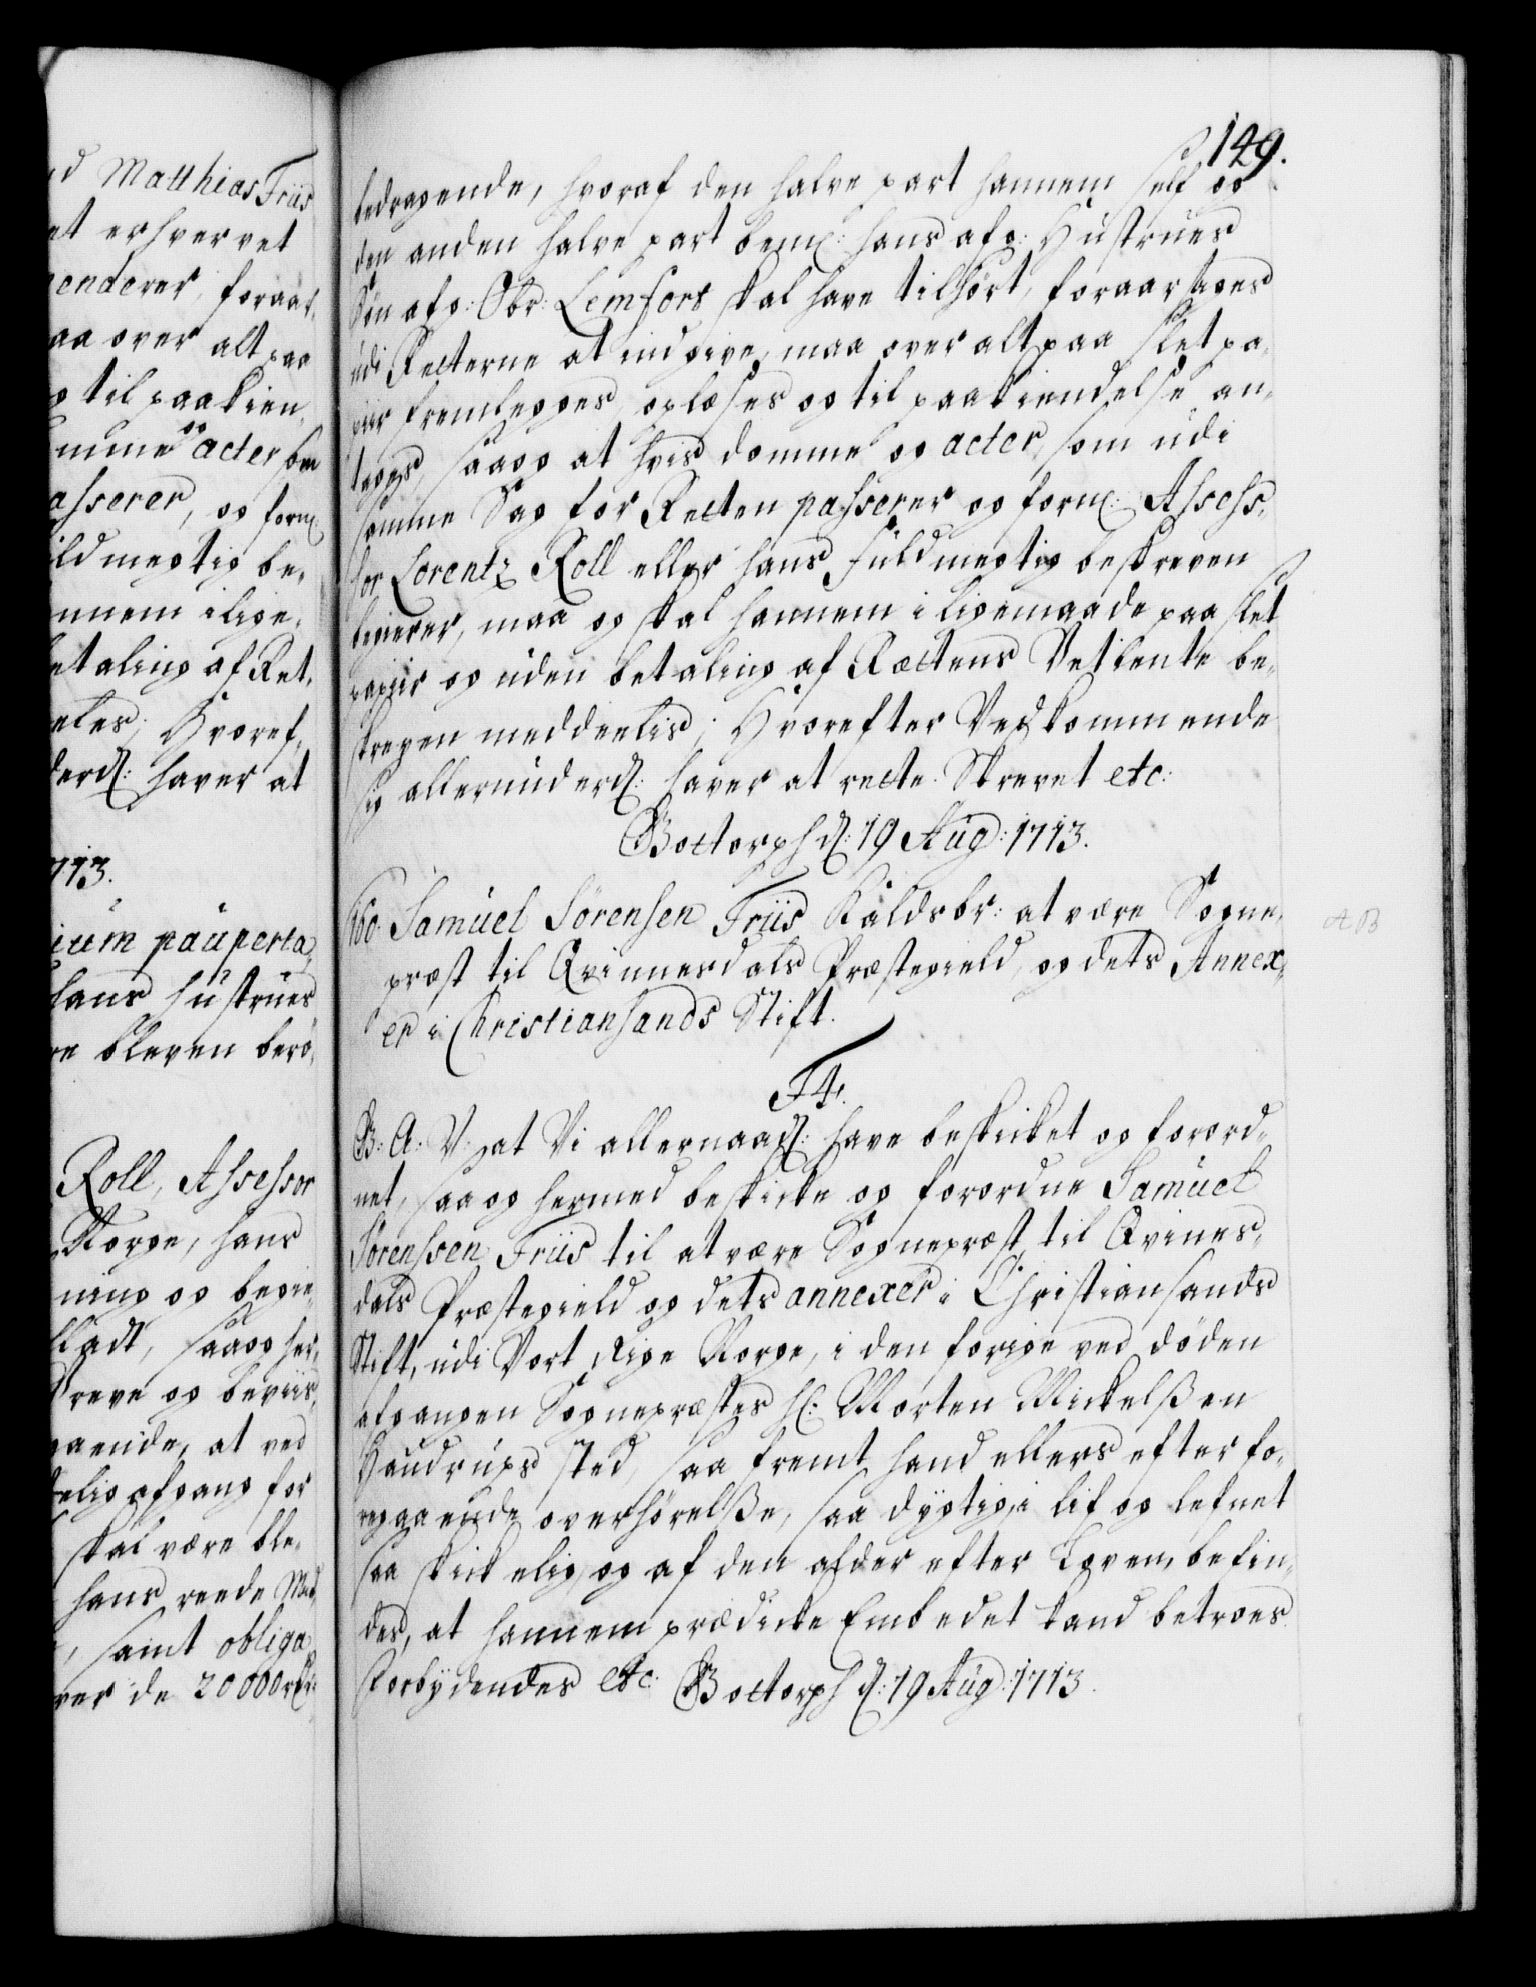 d Matthias Friis
et erhvervet
enderer, foraar¬
aa over alt paa
g til paakien¬
mme og acter som
asserer, og form:
uldmegtig be¬
nnem i lige¬
etaling af Ret¬
eles; Hvoref¬
derd: haver at
713.
ium pauperta
hans hustrues
re bleven berø¬
Roll, Assessor
Norge, hans
ning og begie¬
lladt, saa og her¬
Breve og beviis¬
aaende, at ved
elig afgang for
skal være ble¬
hans reede Mid¬
, samt obliga¬
ver de 20000 rdr:
149.
bedragende, hvoraf den halve part hannem self og
den anden halve part bem: hans afg: Hustrues
Søn afg: Obr: Lemfors skal have tilhørt, foraarsages
udi Retterne at indgive, maa over alt paa slet pa¬
piir fremlegges, oplæses og til paakiendelse an¬
tages, saa og at hvis domme og acter, som udi
samme Sag for Retten passerer og form: Assess¬
sor Lorentz Roll eller hans fuldmegtig beskreven
begierer, maa og skal hannem i ligemaade paa slet
papiir og uden betaling af Rættens Vetkente be¬
skreven meddeelis; Hvorefter Vedkommende
sig allerunderd: haver at rette. Skrevet etc:
Gottorph d: 19 Aug: 1713.
160. Samuel Sørensen Friis Kaldsbr: at være Sogne¬
præst til Qvinnesdals Præstegield, og dets Annex¬
er i Christiansands Stift.
F4.
G: A: V: at Vi allernaad: have beskicket og forord¬
net, saa og hermed beskicke og forordne Samuel
Sørenssen Friis til at være Sognepræst til Qvines¬
dals Præstegield og dets annexer i Christiansands
Stift, udi Vort Rige Norge, i den forige ved døden
afgangen Sognepræstes H: Morten Mickelßen
Haudrups sted, saa fremt hand ellers efter fo¬
regaaende overhørelße, saa dygtig, i lif og lefnet
saa skickelig, og af den alder efter Loven, befin¬
des, at hannem prædicke Embedet kand betroes
Forbydendes etc: Gottorph d: 19 Aug: 1713.